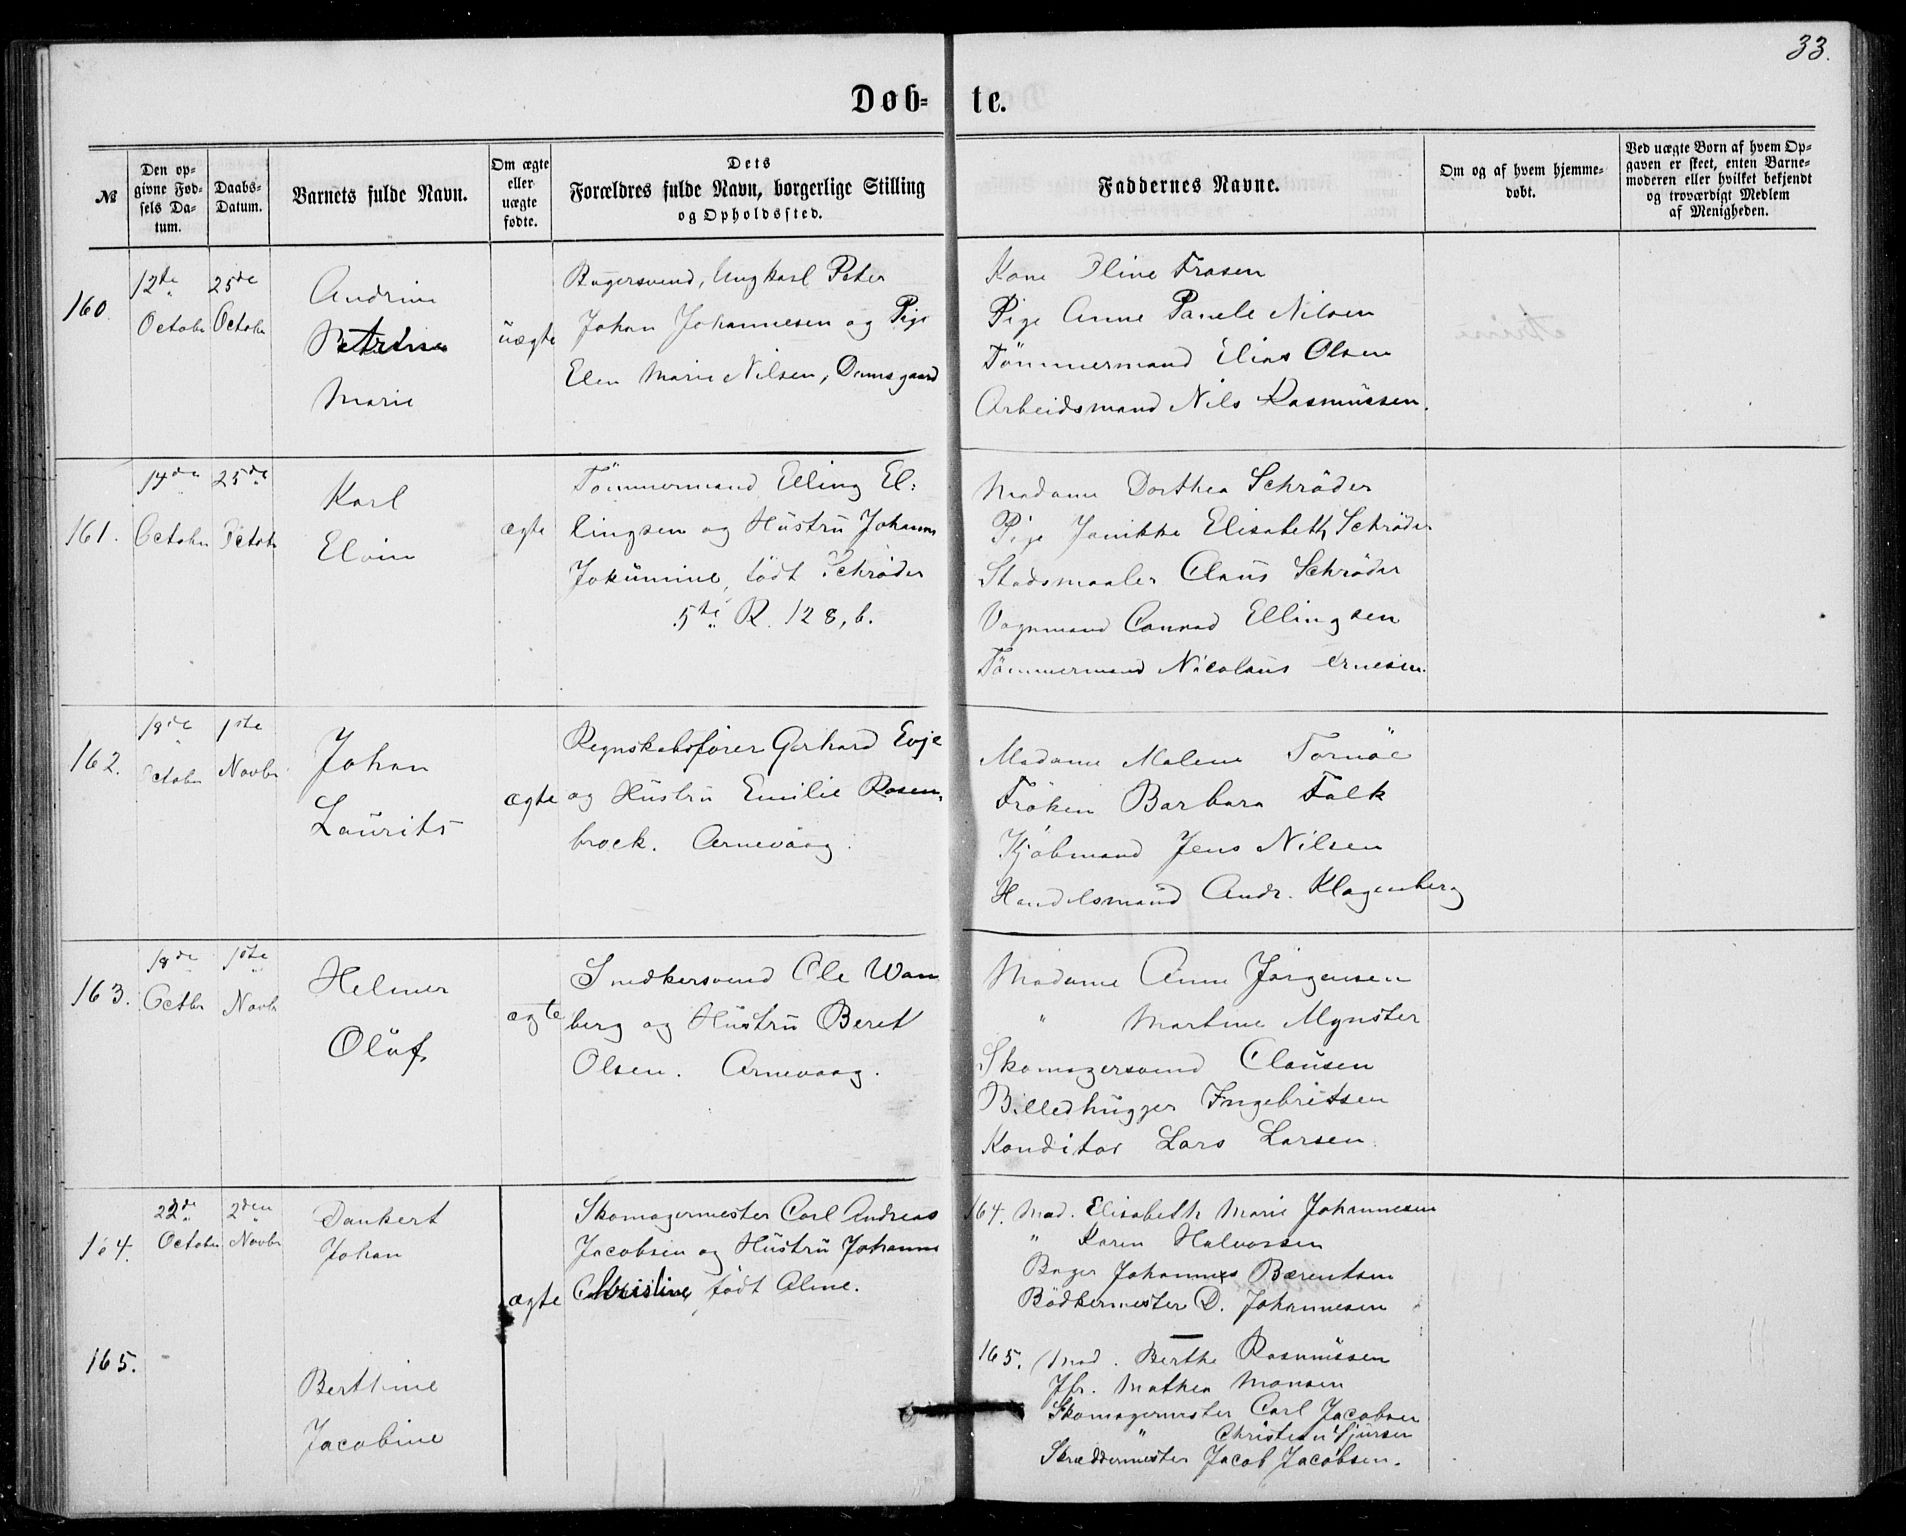 33.
Døb- te.
№
Den op-
givne Fød-
sels Da-
tum.
Daabs-
Datum.
Barnets fulde Navn.
Om ægte
eller
uægte
fødte.
Dets
Forældres fulde Navn, borgerlige Stilling
og Opholdssted.
Faddernes Navne.
Om og af hvem hjemme-
døbt.
Ved uægte Børn af hvem Op-
gaven er skeet, enten Barne-
moderen eller hvilket bekjendt
og troværdigt Medlem
af Menigheden.
160
12te
October
25de
October
Andrine
Petrine
Marie
uægte
Bagersvend, Ungkarl Peter
Johan Johannesen og Pige
Elen Marie Nilsen, Damsgaard
Kone Eline Frasen
Pige Anne Panele Nilsen
Tömmermand Elias Olsen
Arbeidsmand Nils Rasmussen.
161.
14de
October
25de
October
Karl
Elvin
ægte
Tömmermand Elling El:
lingsen og Hustru Johanne
Jokumine, födt Schröder
5te R. 128, b.
Madame Dorthea Schröder
Pige Janikke Elisabeth Schröder
Stadsmaaler Claus Schröder
Vognmand Conrad Ellingsen
Tömmermand Nicolaus Arnesen.
162.
18de
October
1ste
Novbr
Johan
Laurits
ægte
Regnskabsförer Gerhard Evje
og Hustru Emilie Rosen,
brock. Arnevaag.
Madame Malene Tornöe
Fröken Barbara Falk
Kjöbmand Jens Nilsen
Handelsmand Andr. Klagenberg
163.
18de
Octbr
1ste
Novbr
Helmer
Oluf
ægte
Snedkersvend Ole Wan
berg og Hustru Beret
Olsen. Arnevaag.
Madame Anne Jörgensen
" Martine Mynster
Skomagersvend Clausen
Billedhugger Ingebritsen
Konditor Lars Larsen.
164.
22de
October
2den
Novbr
Dankert
Johan
ægte
Skomagermester Carl Andreas
Jacobsen og Hustru Johanne
Christine födt Alme.
164. Mad. Elisabeth Marie Johannesen
" Karen Halvorsen
Bager Johannes Bærentsen
Bödkermester D. Johannesen
165.
Berthine
Jacobine
165. Mad. Berthe Rasmussen
Jfr. Mathea Monsen
Skomagermester Carl Jacobsen
" Christian Sjursen
Skræddermester Jacob Jacobsen.